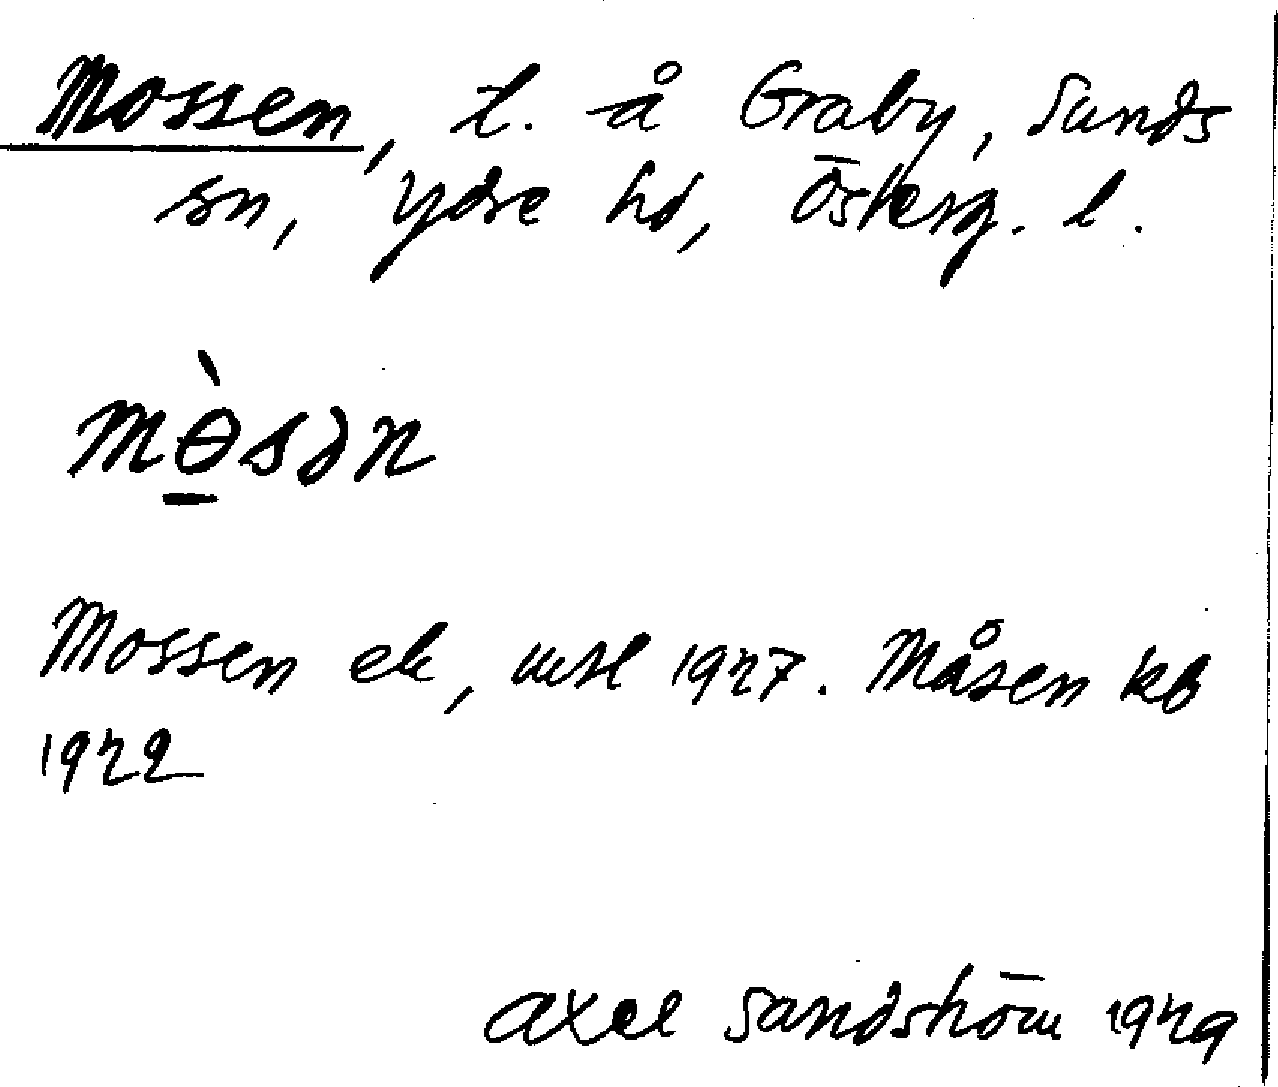 Mossen, t. å Graby, Sunds
sn, Ydre hd, Österg. l.
mɵ̠̀sən
Mossen ek, utsl 1927. Måsen kb
1922
Axel Sandström 1929